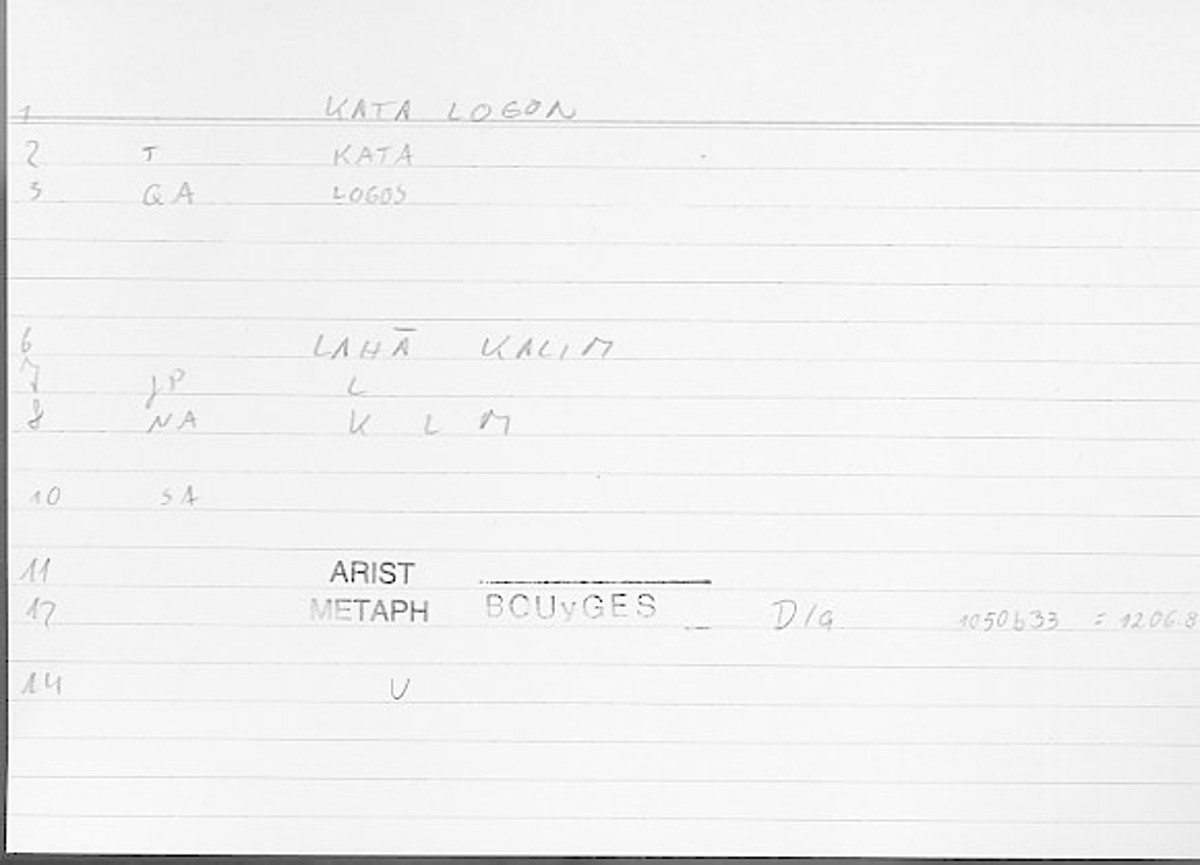 1 KATA LOGON
2 T KATA
3 QA LOGOS
6 LAHĀ KALIM
7 JP L
8 NA K L M
10 SA
11 ARIST
12 METAPH BOUyGES D/a 1050b33 = 1206.8
14 V